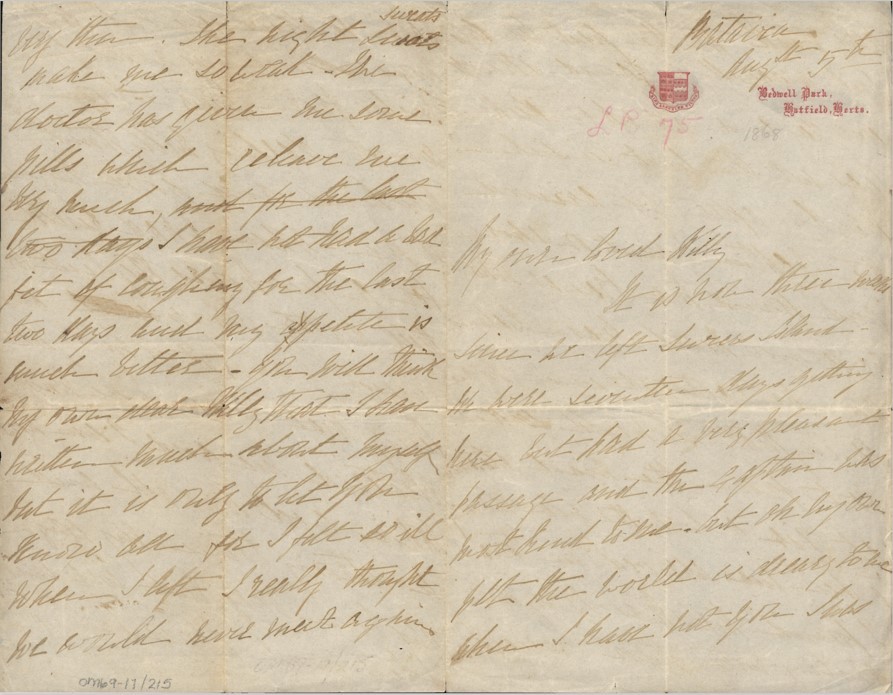 Batavia
Augst 5th
Bedwell Park,
Hatfield, Herts.
L B 75
1868
My own loved Willy
It is now three weeks
since we left Sweers Island -
We were seventeen days getting
here but had a very pleasant
passage and the Captain was
most kind to me. but oh my own
pet the world is dreary to me
when I have not you I was
very thin. The night sweats
sweats
make me so weak - The
doctor has given me some
pills which releave me
very much, and for the last
two days I have not had a bad
fit of coughing for the last
two days and my appetite is
much better - You will think
my own dear Willy that I have
written much about myself
but it is only to let you
know all for I felt so ill
when I left I really thought
we would never meet again
OM69-17/215